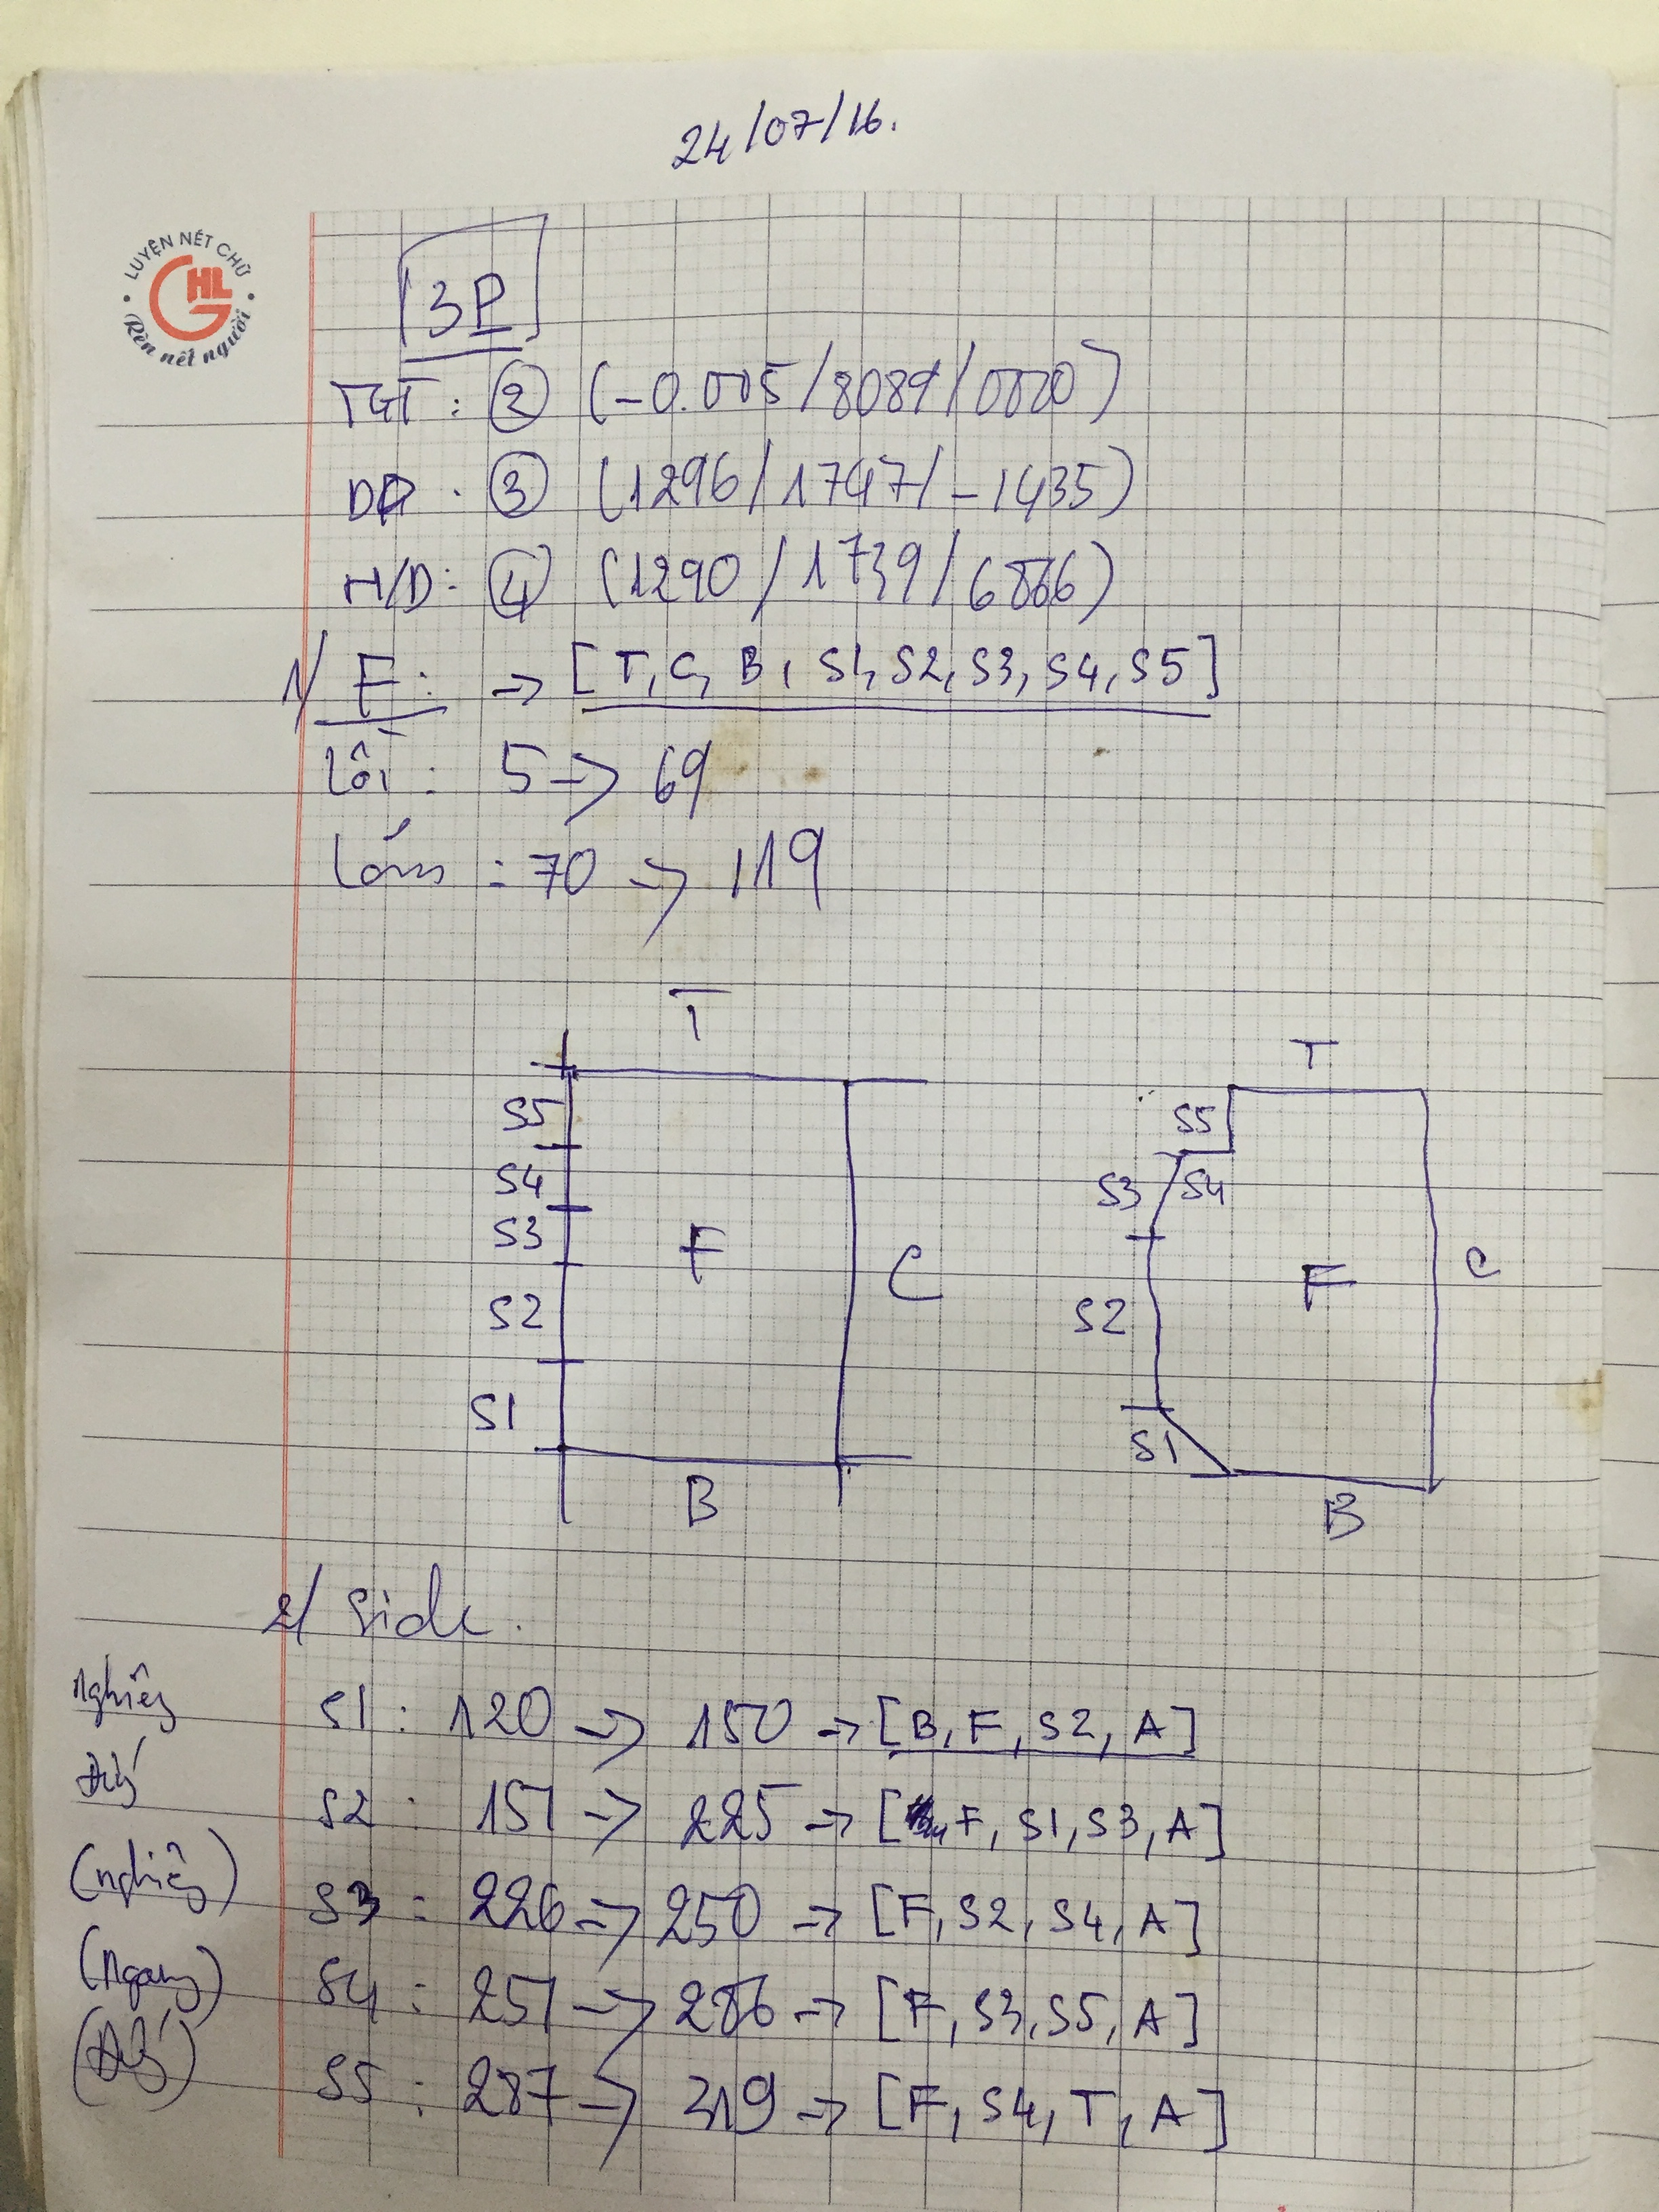 24/07/16.
LUYỆN NÉT CHỮ
GHL
Rèn nết người
3P
TGT: 2 (-0.005/8089/0020)
DA: 3 (1296/1747/-1435)
H/D: 4 (1290/1739/6866)
1/ F: → [T, C, B, S1, S2, S3, S4, S5]
lồi: 5 → 69
lõm: 70 → 119
T
S5
S4
S3
S2
S1
F
C
B
T
S5
S3
S4
S2
S1
F
C
B
2/ Side.
Nghiêng S1: 120 → 150 → [B, F, S2, A]
Đứng S2: 151 → 225 → [F, S1, S3, A]
(nghiêng) S3: 226 → 250 → [F, S2, S4, A]
(Ngang) S4: 251 → 286 → [F, S3, S5, A]
(Đứng) S5: 287 → 319 → [F, S4, T, A]